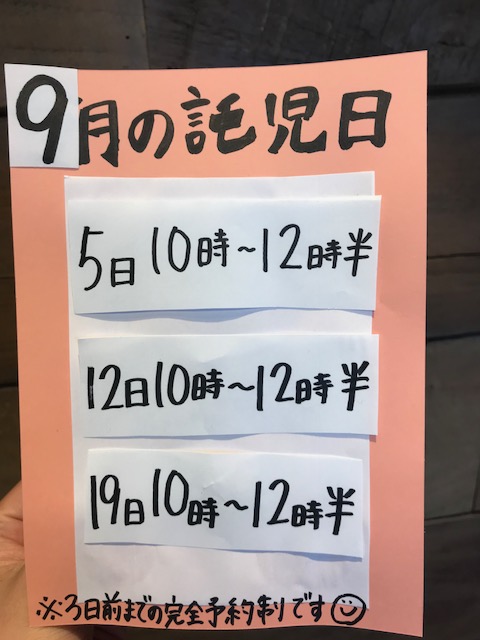 9月の託児日
5日 10時~12時半
12日 10時~12時半
19日 10時~12時半
※3日前までの完全予約制です☺